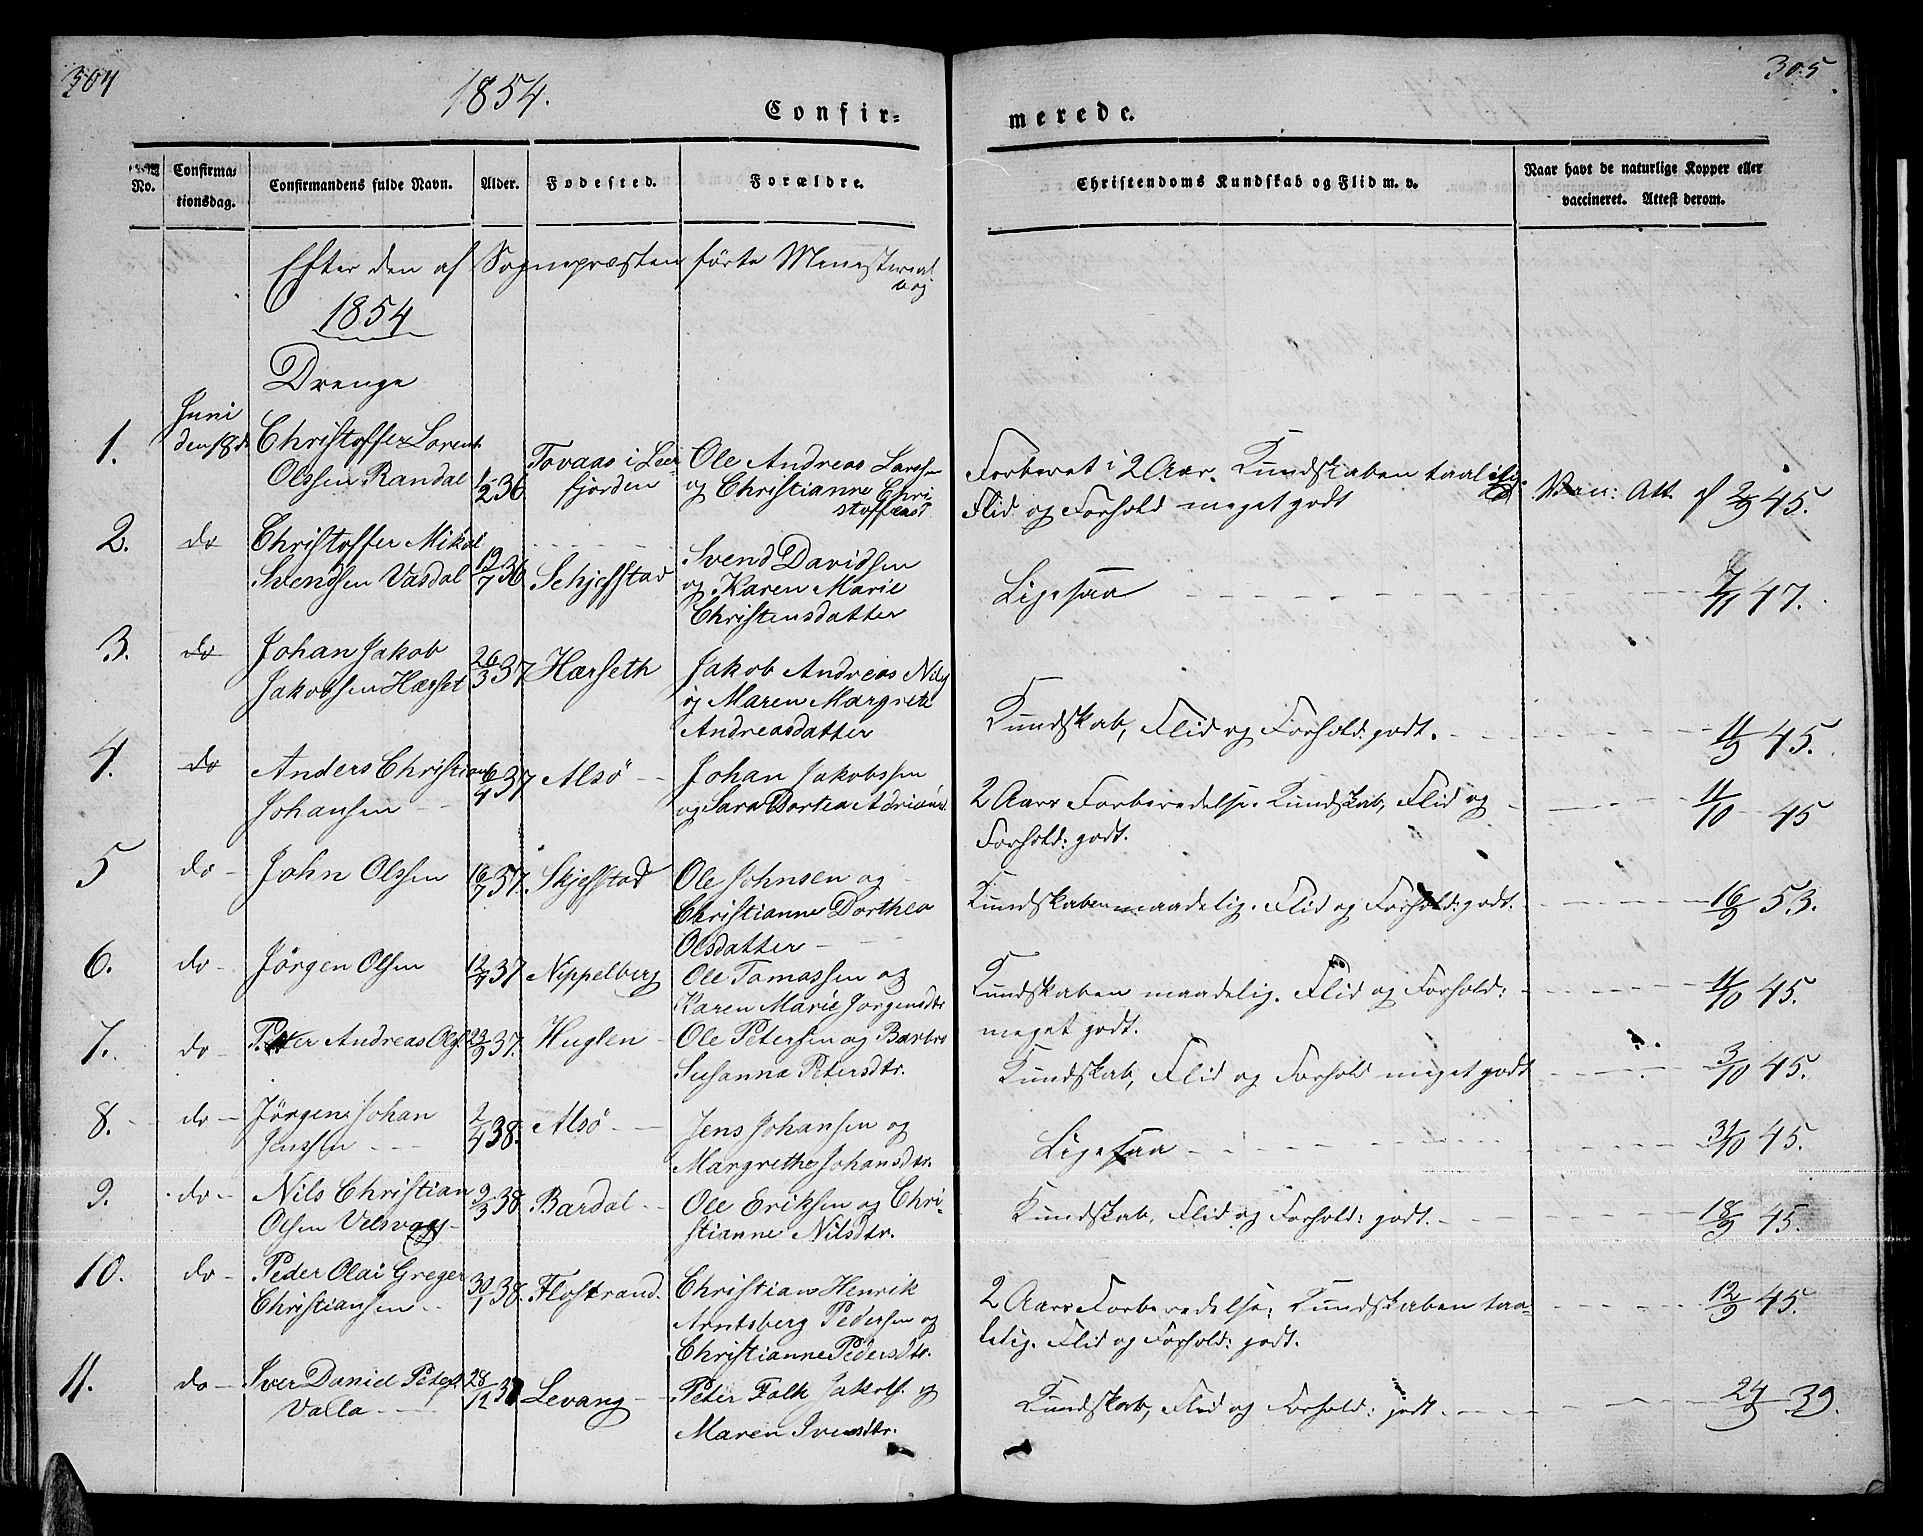 304
1854.
Confir=
merede.
305
No.
Confirma=
tionsdag.
Confirmandens fulde Navn.
Alder.
Fødested.
Forældre.
Christendoms Kundskab og Flid m. v.
Naar havt de naturlige Kopper eller
vaccineret. Attest derom.
Efter den af Sognepræsten førte Ministerial
bog
1854
Drenge
1. Juni den 18de Christoffer Lorents
Olssen Randal 1/2 36 Tovaas i Leer
fjorden Ole Andreas Larssen
og Christianne Chri-
stoffersd. Forberet i 2 Aar. Kundskaben taalelig.
Flid og Forhold meget godt Vac: Att. af 2/9 45.
2. do Christoffer Mikal
Svendsen Vasdal 19/7 36 Schjefstad Svend Davidsen
og Karen Marie
Christensdatter Ligesaa 47.
3. do Johan Jakob
Jakobsen Hæsset 26/3 37 Hærseth Jakob Andreas Nils
og Maren Margrete
Andreasdatter Kundskab, Flid og Forhold: godt. 11/9 45.
4. do Anders Christian
Johansen 16/4 37 Alsö Johan Jakobssen
og Sara Dortea Adriansd. 2 Aars Forberedelse. Kundskab, Flid og
Forhold: godt. 11/10 45
5 do John Olssen 16/7 37. Skjefstad Ole Johnsen og
Christianne Dorthea
Olsdatter Kundskaben maadelig. Flid og Forhold: godt. 16/9 53.
6. do Jörgen Olsen 12/9 37 Nippelberg Ole Tomassen og
Karen Marie Jorgensdtr Kundskaben maadelig. Flid og Forhold:
meget godt. 11/10 45.
7. do Peter Andreas Ols. 22/9 37. Huglen Ole Petersen og Barbro
Susanna Petersdtr. Kundskab, Flid og Forhold meget godt 3/10 45.
8. do Jörgen Johan
Jenssen 2/4 38. Alsö Jens Johansen og
Margrethe Johansdtr. Ligesaa 31/10 45.
9. do Nils Christian
Olsen Velsvaag 9/3 38 Bardal Ole Eriksen og Chri-
stianne Nilsdtr. Kundskab, Flid og Forhold: godt. 18/9 45.
10. do Peder Olai Greger
Christiansen 30/1 38. Flostrand. Christian Henrik
Arntsberg Pedersen og
Christianne Pedersdtr. 2 Aars Forberedelse; Kundskaben taa-
lelig. Flid og Forhold: godt. 12/9 45.
11. do Iver Daniel Peters.
Valla 28/12 37 Levang Peter Falk Jakobs. og
Maren Iversdtr. Kundskab, Flid og Forhold: godt. 24/9 39.